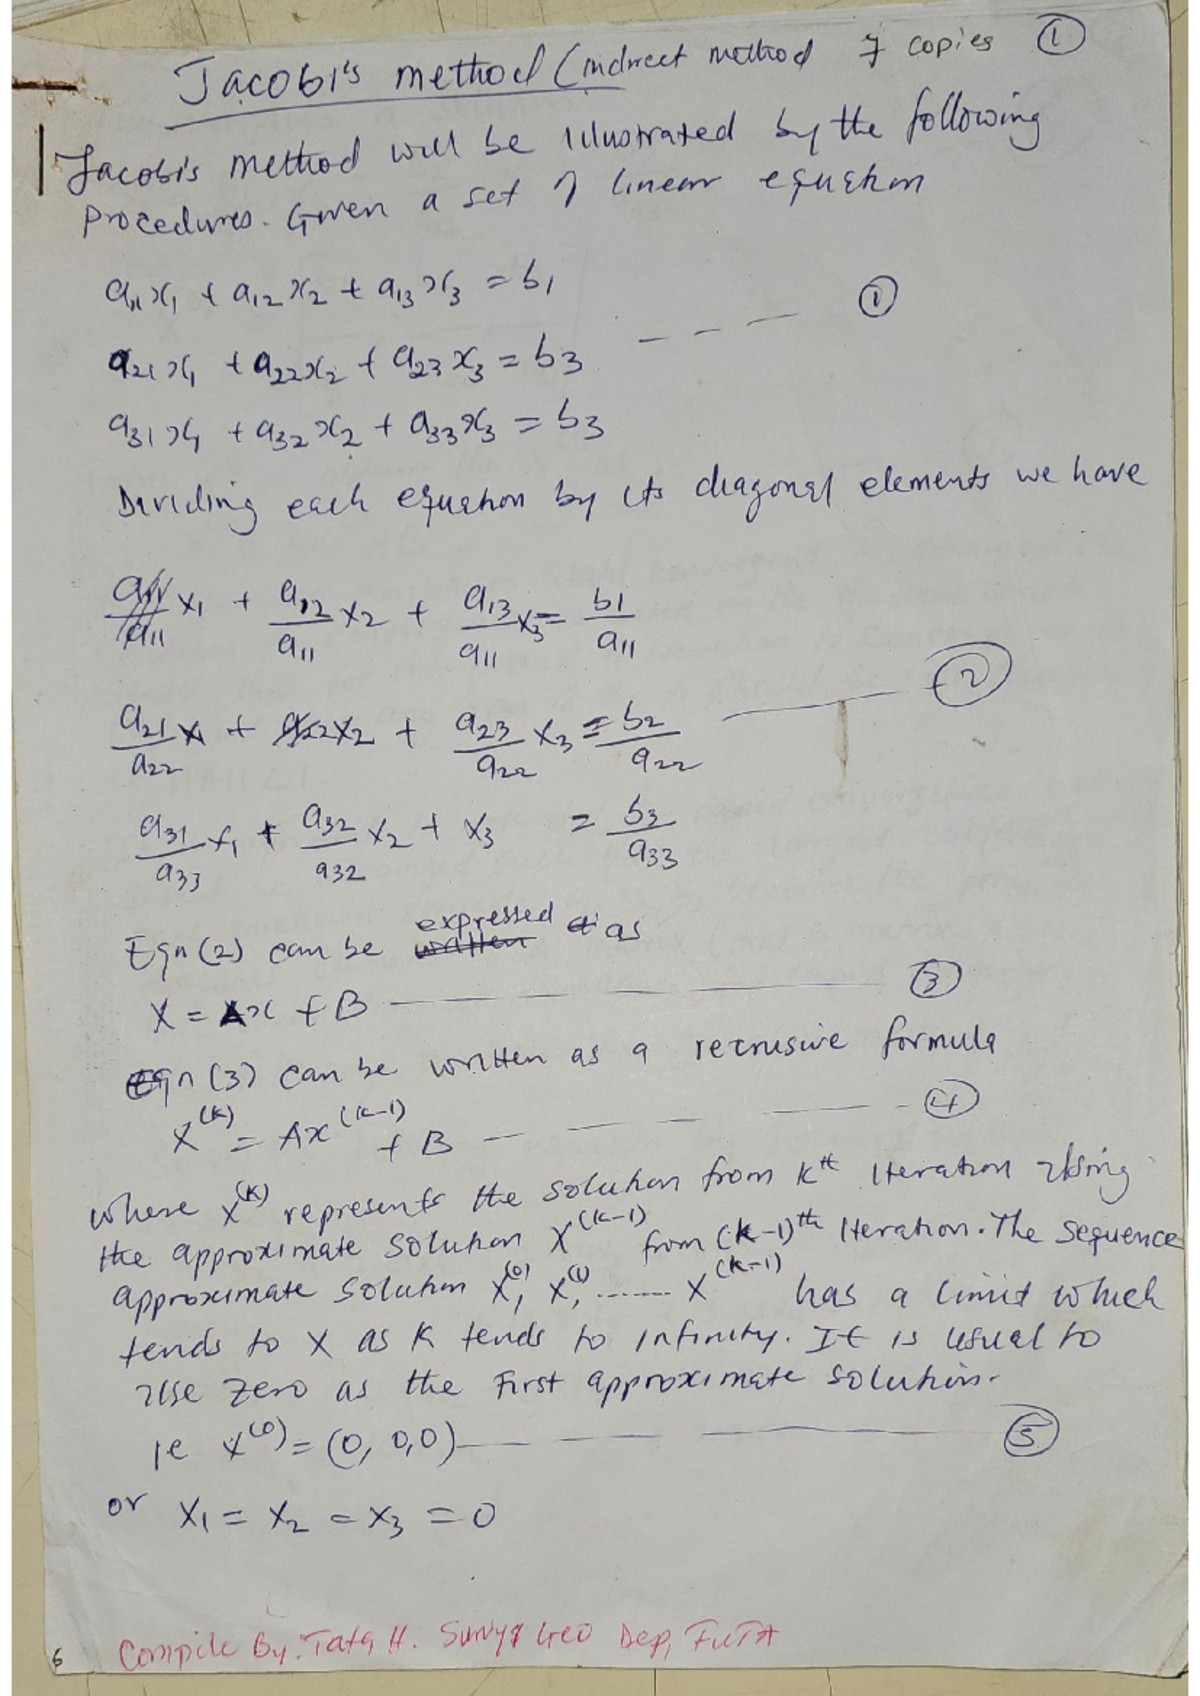 Jacobi's method (indirect method 7 copies ①
Jacobi's method will be illustrated by the following
procedures. Given a set of linear equation
a₁₁x₁ + a₁₂x₂ + a₁₃x₃ = b₁
a₂₁x₁ + a₂₂x₂ + a₂₃x₃ = b₃ --- ①
a₃₁x₁ + a₃₂x₂ + a₃₃x₃ = b₃
Dividing each equation by its diagonal elements we have
a₁₁/a₁₁ x₁ + a₁₂/a₁₁ x₂ + a₁₃/a₁₁ x₃ = b₁/a₁₁
a₂₁/a₂₂ x₁ + a₂₂x₂ + a₂₃/a₂₂ x₃ = b₂/a₂₂ — ②
a₃₁/a₃₃ x₁ + a₃₂/a₃₂ x₂ + x₃ = b₃/a₃₃
Eqn (2) can be written expressed as
X = Ax + B — ③
Eqn (3) can be written as a recrusive formula
X⁽ᵏ⁾ = Ax⁽ᵏ⁻¹⁾ + B — ④
where X⁽ᵏ⁾ represents the solution from kᵗʰ Iteration Using
the approximate solution X⁽ᵏ⁻¹⁾ from (k-1)ᵗʰ Iteration. The sequence
approximate solution X⁽⁰⁾, X⁽¹⁾, ....... X⁽ᵏ⁻¹⁾ has a limit which
tends to X as K tends to infinity. It is usual to
use zero as the first approximate solution.
ie X⁽⁰⁾ = (0, 0, 0) — ⑤
or X₁ = X₂ = X₃ = 0
Compile By: Tata H. Survy & Geo Dep, FUTA
6